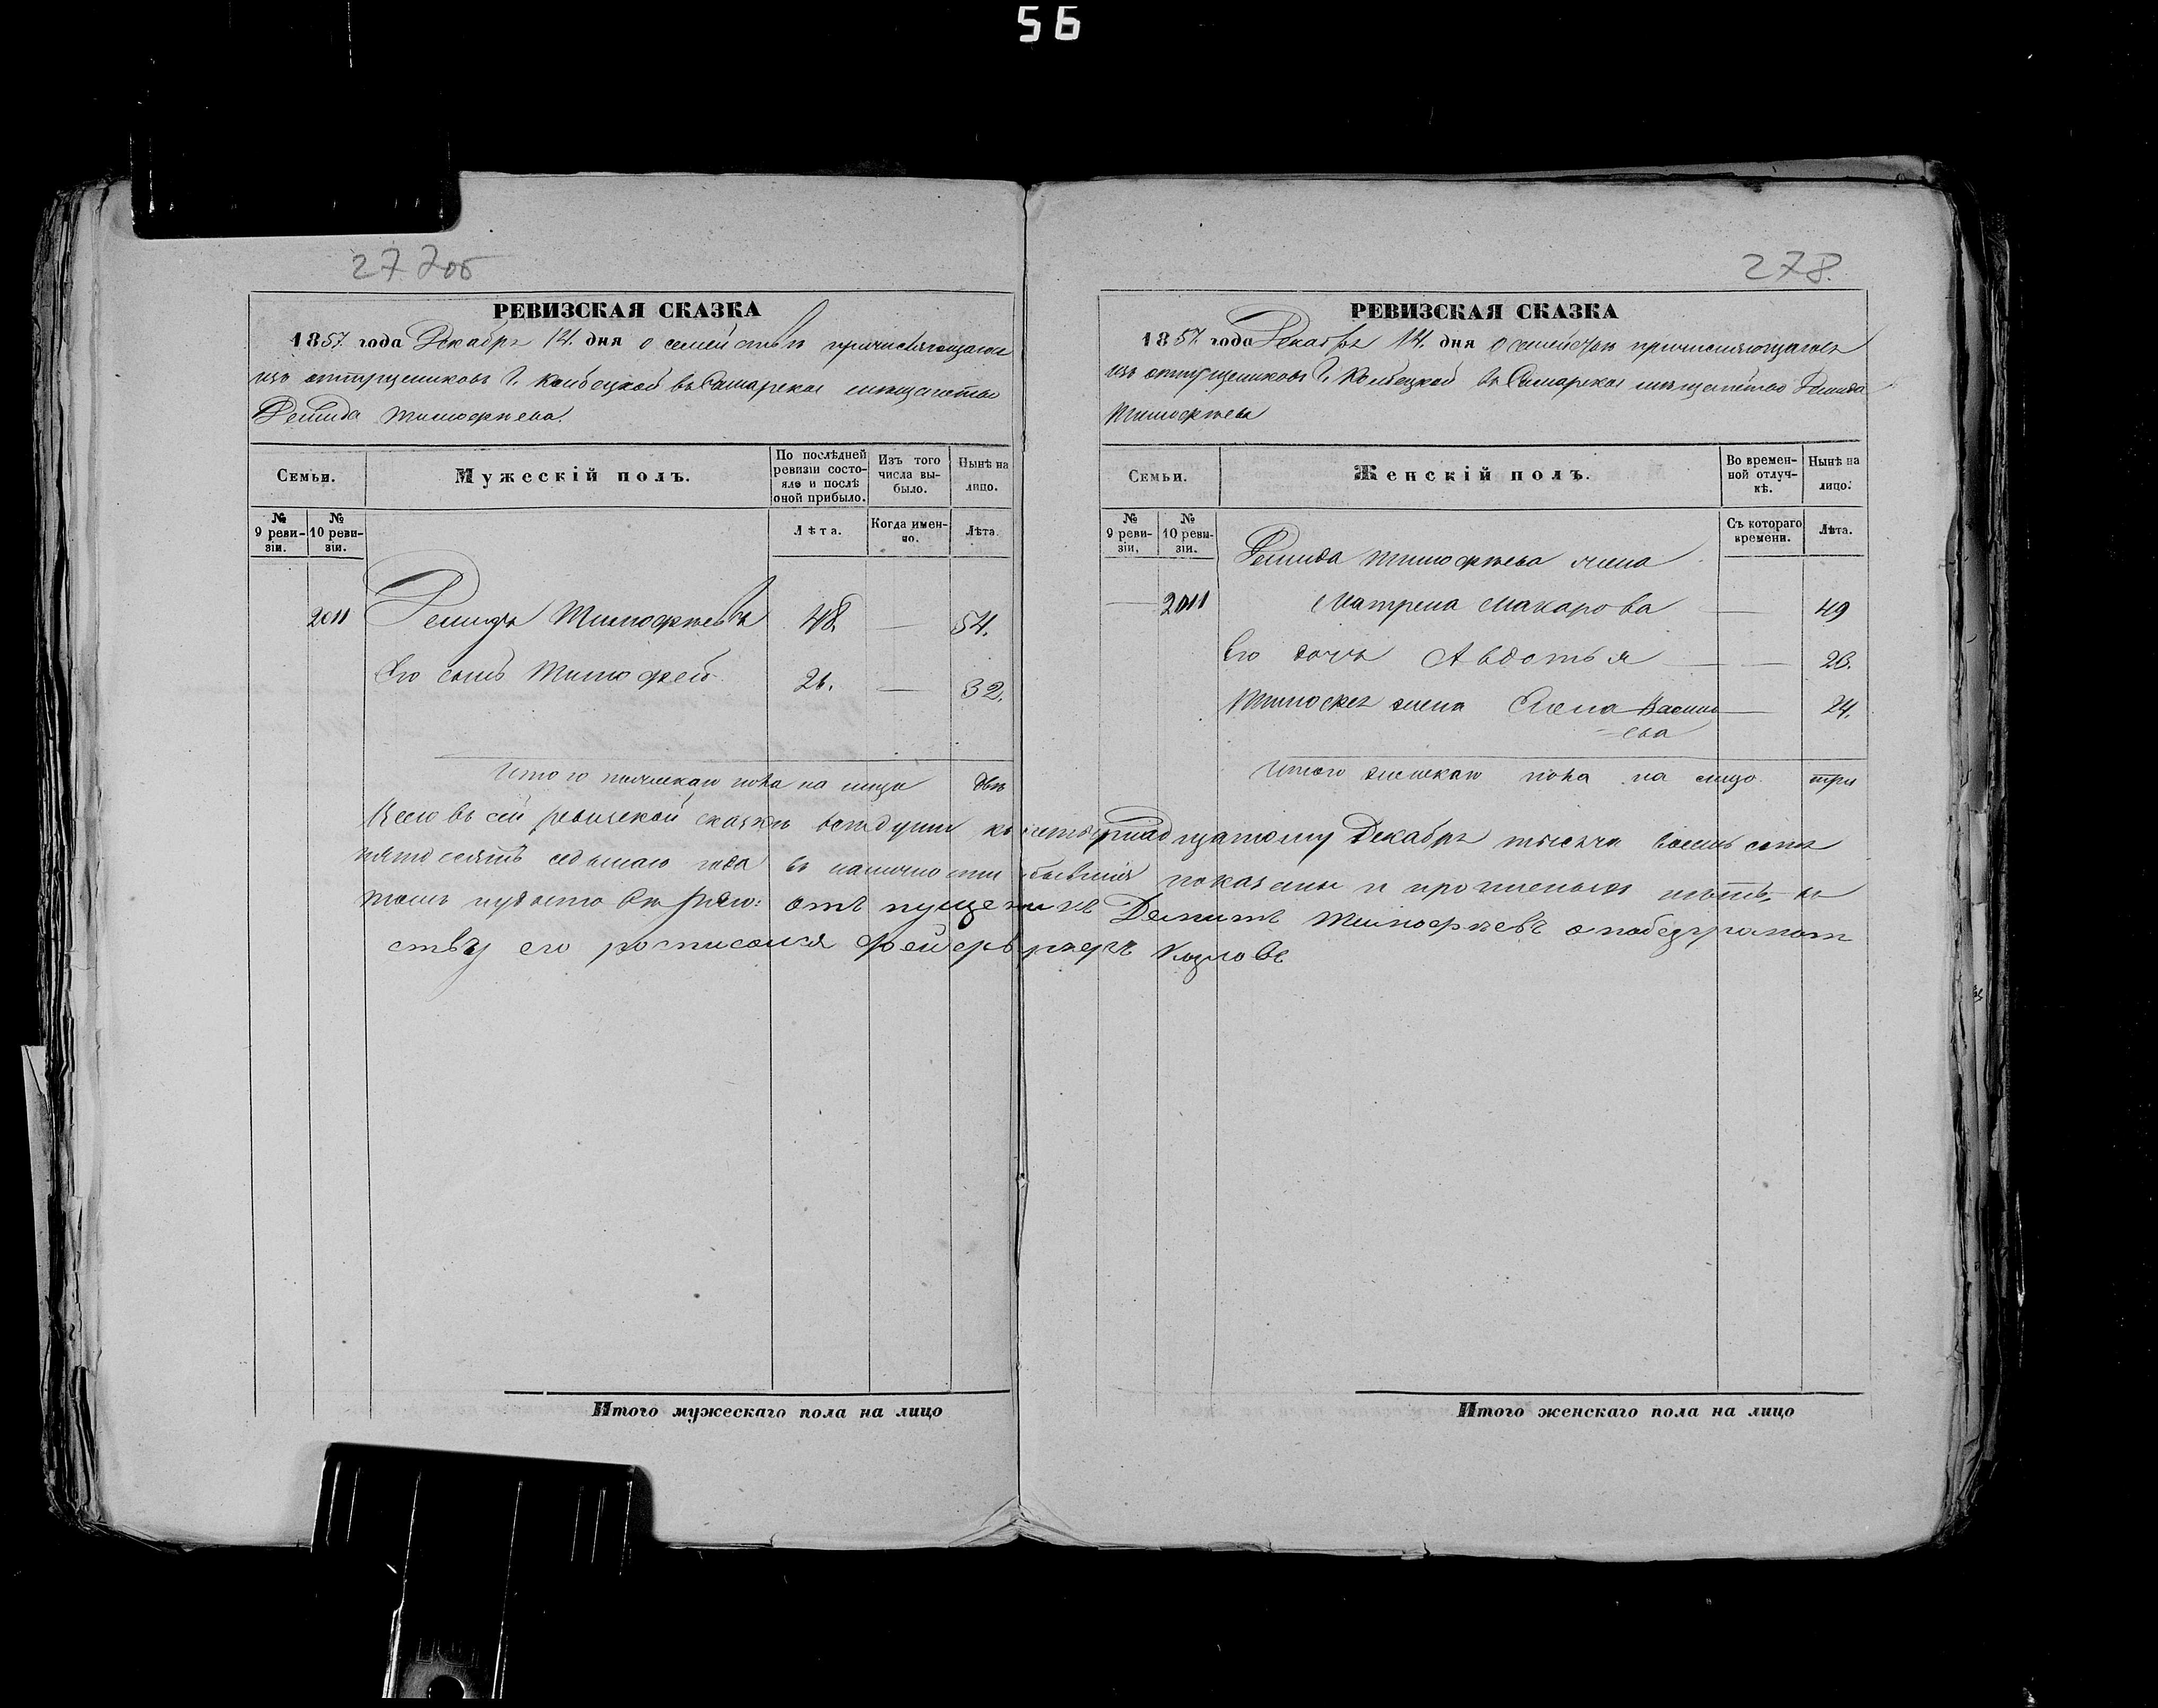 56
277об
РЕВИЗСКАЯ СКАЗКА
1857 года Декабря 14. дня о семействѣ причисляющагося
изъ отпущениковъ Г. въ Самарское мѣщанство
Демида Тимофѣева.
Семьи.
Мужескій полъ.
По послѣдней ревизіи состояло и послѣ оной прибыло.
Изъ того числа выбыло.
Нынѣ на лицо.
№ 9 ревизіи.
№ 10 ревизіи.
Лѣта.
Когда именно.
Лѣта.
2011 Демидъ Тимофѣевъ 48. — 54.
Его сынъ Тимофей 26. — 32.
Итого мужескаго пола на лицо двѣ
Итого мужескаго пола на лицо
278.
РЕВИЗСКАЯ СКАЗКА
1857 года Декабря 14. дня о семействѣ причисляющагося
изъ отпущениковъ Г. въ Самарское мѣщанство Демида
Тимофѣева
Семьи.
Женскій полъ.
Во временной отлучкѣ.
Нынѣ на лицо.
№ 9 ревизіи.
№ 10 ревизіи.
Съ котораго времени.
Лѣта.
Демида Тимофѣева жена
— 2011 Матрена Макарова — 49
Его дочь Авдотья — — 26.
Тимофея жена Елена Васильева — 24.
Итого женскаго пола на лицо три
Всего въ сей ревизской сказкѣ всѣ души къ четырнадцатому Декабря тысяча восемь сотъ
пятьдесятъ седьмаго года въ наличности бывшія показаны и прописныхъ нѣтъ, въ
томъ отпущеникъ Демитъ Тимофѣевъ а побезграмот
ству его росписался фейерверкеръ Козловъ
Итого женскаго пола на лицо